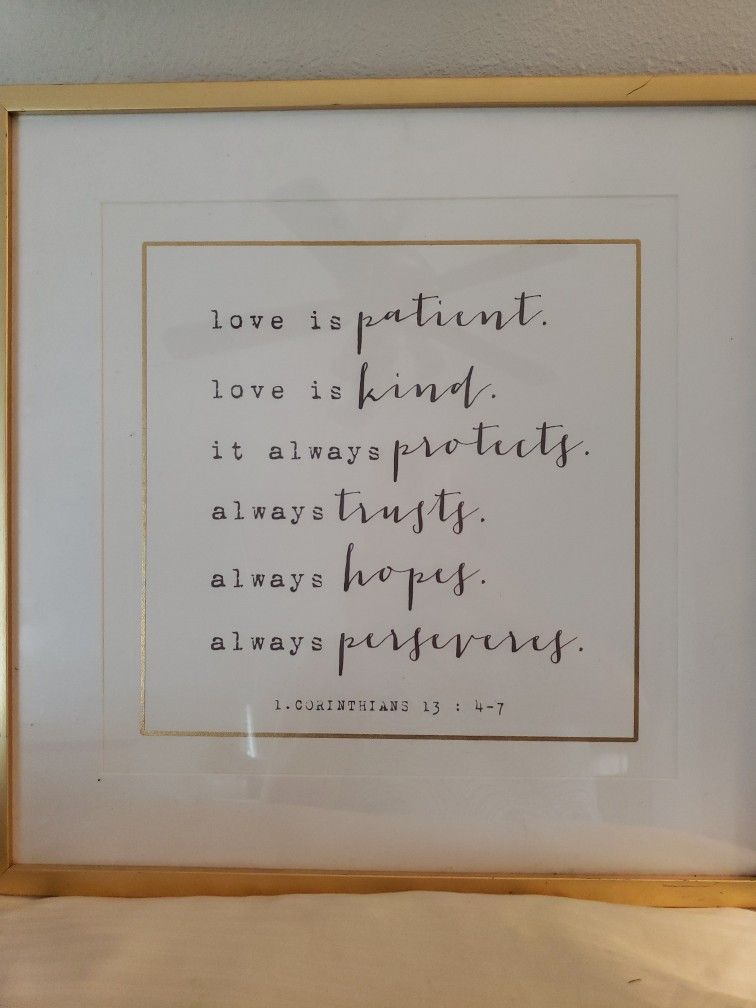 love is patient.
love is kind.
it always protects.
always trusts.
always hopes.
always perseveres.
1.CORINTHIANS 13 : 4-7